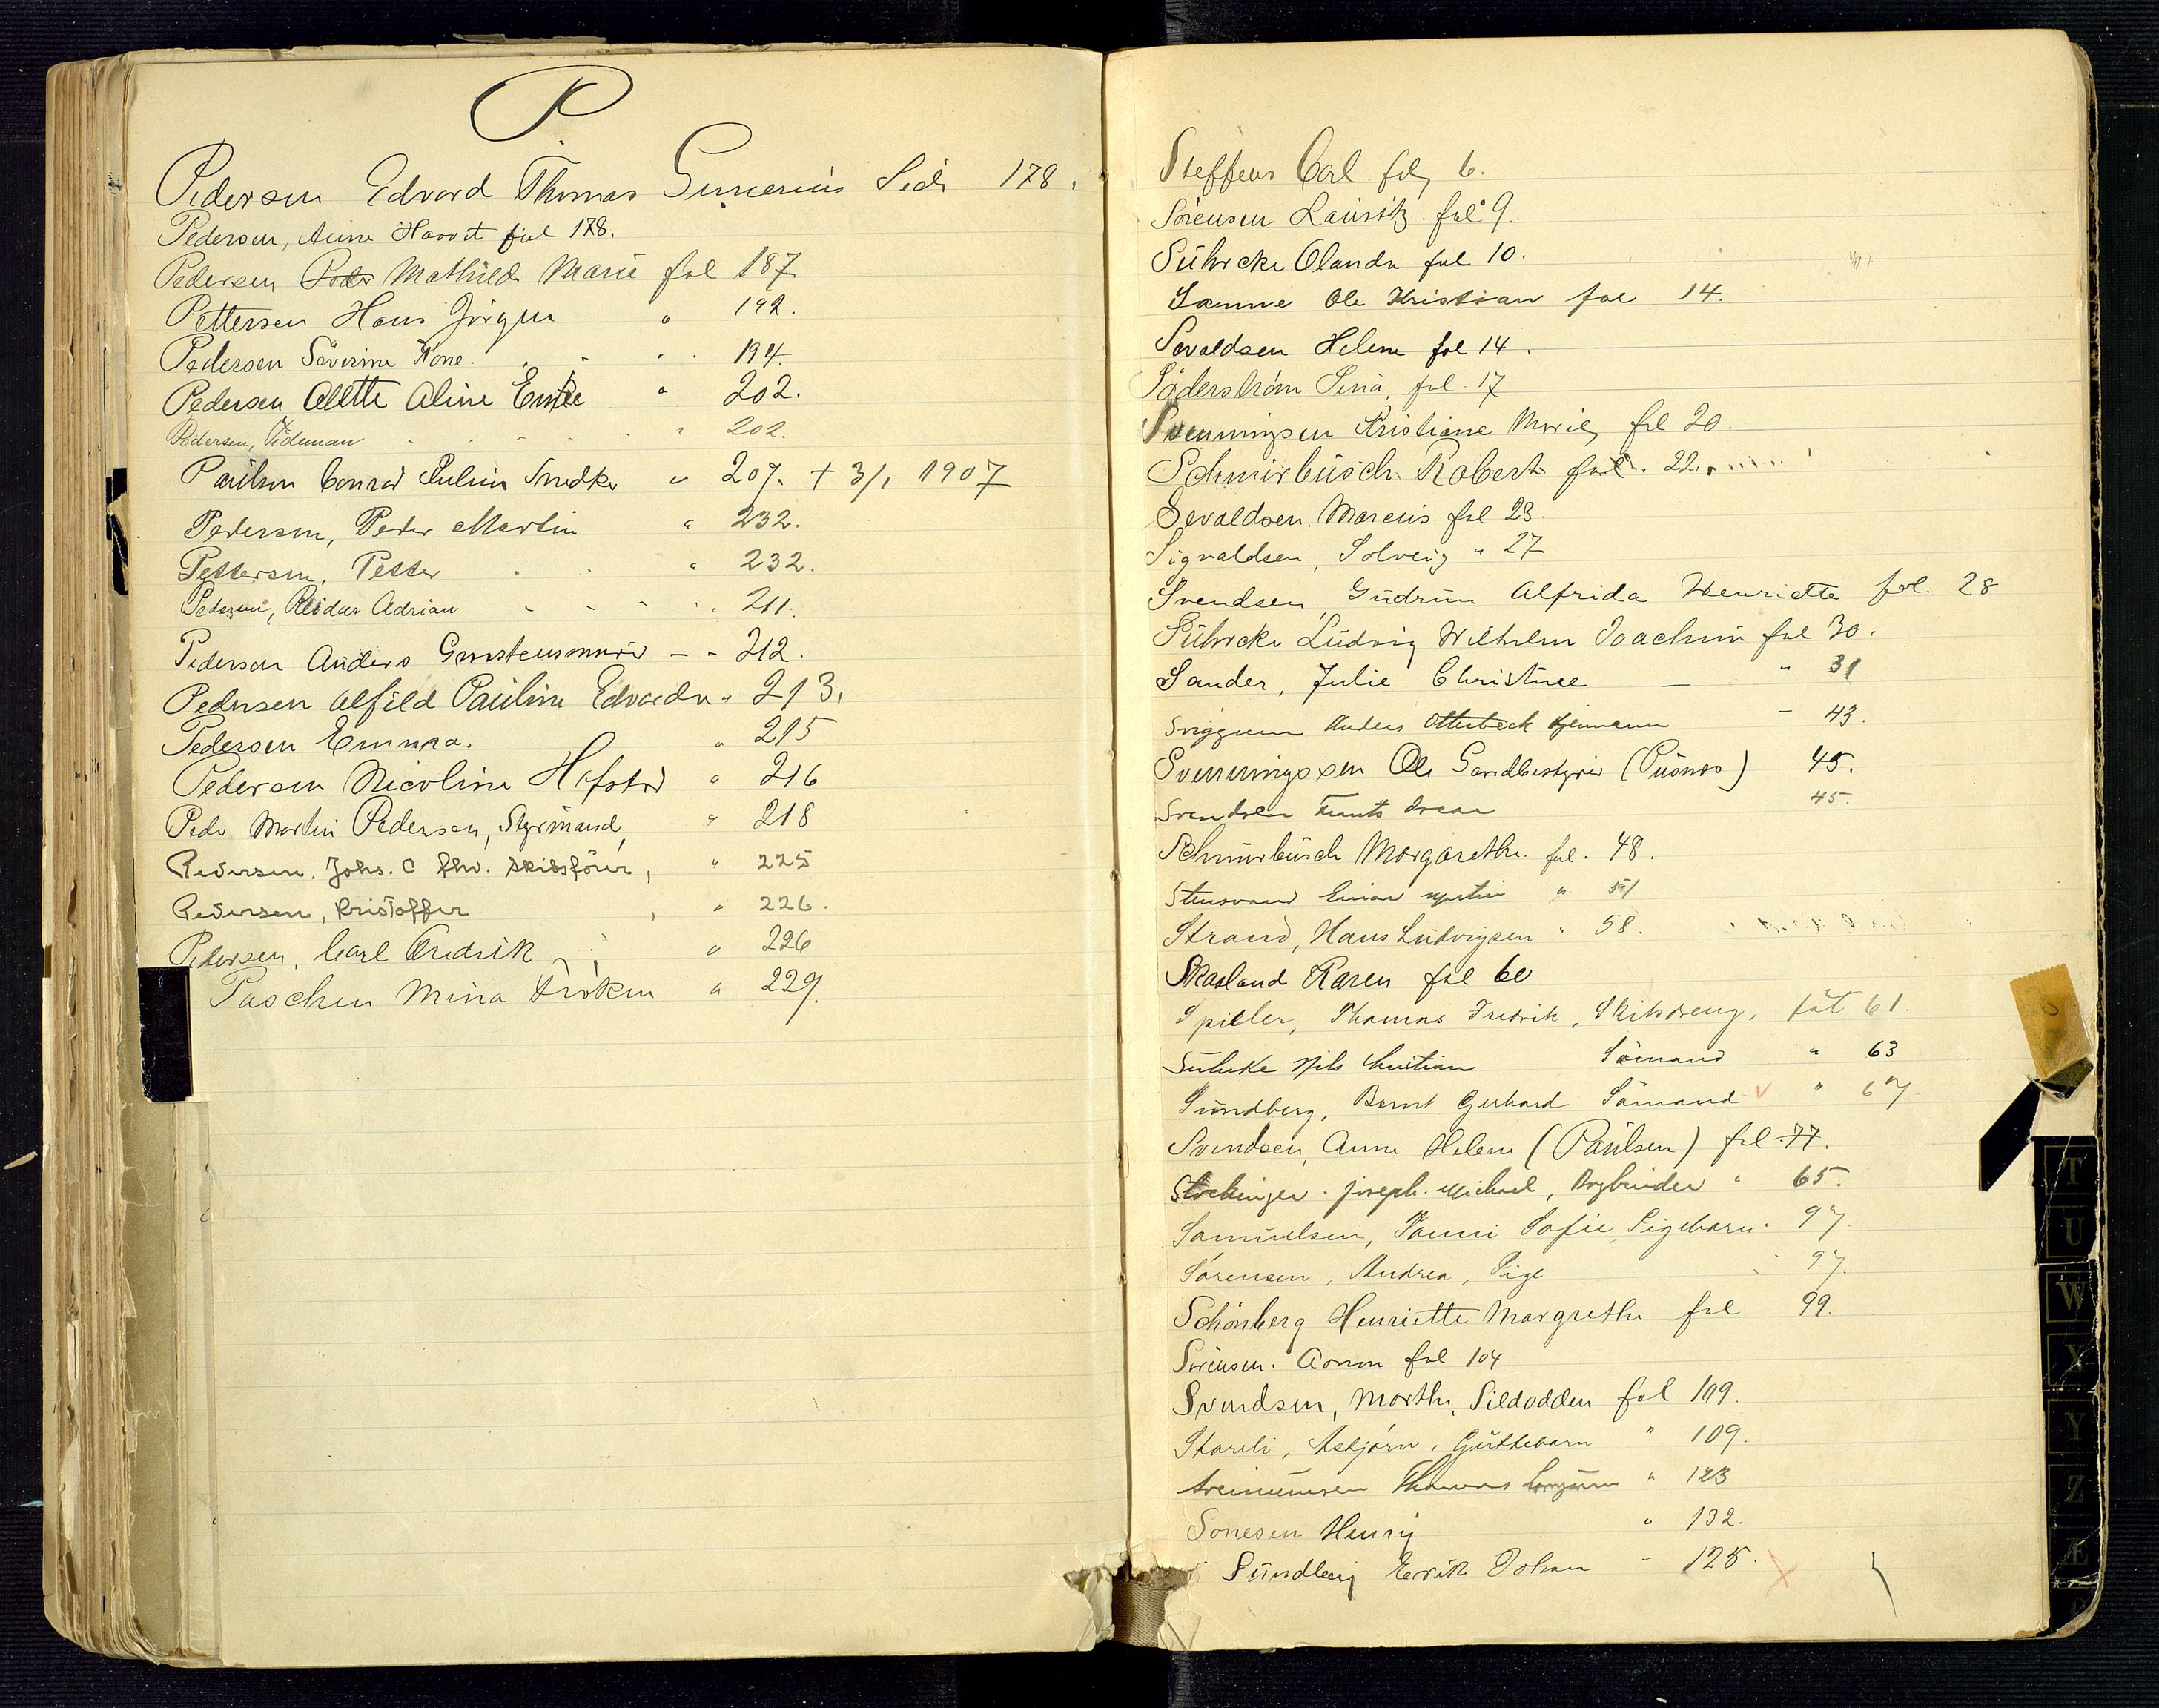 P
Pedersen Edvard Thomas Gunerius Side 178.
Pedersen, Anne Harvet fol 178.
Pedersen Peder Mathilde Marie fol 187
Pettersen Hans Jörgen " 192.
Pedersen Severine Kone. " 194.
Pedersen Alette Aline Emilie " 202.
Pedersen, Tideman " 202.
Paulsen Conrad Julius Snedker " 207. + 3/1 1907
Pedersen, Peder Martin " 232.
Pettersen, Petter " 232.
Pedersen, Reidar Adrian " 211.
Pedersen Anders - - 212.
Pedersen Alfild Pauline Edvarda " 213.
Pedersen Emma. " 215
Pedersen Nicoline Hefsted " 216
Peder Martin Pedersen, Styrmand, " 218
Pedersen. Johs. C fhv. skibsförer, " 225
Pedersen, Kristoffer " 226.
Pedersen, Carl Fredrik " 226
Paschen Mina Fröken " 229.
Steffens Carl. fol 6.
Sörensen Lauritz. fol 9.
Sührcke Olanda fol 10.
Sanne Ole Kristian fol 14.
Sevaldsen Helene fol 14.
Söderström Sina, fol. 17
Svenningsen Kristiane Marie, fol 20.
Schmirbusch Robert fol. 22.
Sevaldsen. Marcus fol 23.
Sigvaldsen, Solveig " 27
Svendsen, Gudrun Alfrida Henriette fol. 28
Sührcke Ludvig Wilhelm Joachim fol 30.
Sander, Julie Christine — " 31
Sviggum Anders Otterbeck - 43.
Svenningssen Ole Sandbestyrer (Pusnes) 45.
Svendsen Frants Oscar 45.
Schmirbusch Margarethe. fol. 48.
Stensvand Einar Martin " 51
Strand, Hans Ludvigsen " 58.
Skasland Karen fol 60
Spiller, Thomas Fredrik, Skibsdreng, fol 61.
Suhrke Nils Christian Sömand " 63
Sundberg, Bernt Gerhard Sömand v " 67
Svendsen, Anne Helene (Paulsen) fol 77.
Stockinger. Joseph. Michael, Bogbinder " 65.
Samuelsen, Fanni Sofie, Pigebarn. 97.
Sörensen, Andrea, Pige " 97.
Schönberg Henriette Margrethe fol 99.
Sörensen. Aanon fol 104
Svendsen, Marthe, Sildodden fol 109.
Storeli, Asbjörn, Guttebarn " 109.
Thomas " 123
Sonesen Henry " 132.
Sundberg Erik Johan - 125. x
T
U
W
X
Y
Z
Æ